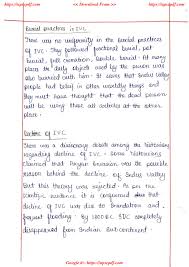 https://upscpdf.com << Download From >> https://upscpdf.com
Burial practices in IVC
There was no uniformity in the burial practices
of IVC. They followed fractional burial, pot
burial, full cremation, double burial. At many
place the daily objects used by the person was
also buried with him. It says that Indus valley
people had belief in other worldly things and
they must have thought that the dead person
will be using those all articles at the other
place.
Decline of IVC
There was a discrepancy debate among the historians
regarding decline of IVC. Some historians
claimed that Aryan Invasion was the possible
reason behind the decline of Indus Valley
But this theory was rejected. As per the scientific
evidence it is concluded that the
decline of IVC was due to Inundation and
frequent flooding. By 1800BC IVC completely
disappeared from Indian Subcontinent.
Google it:- https://upscpdf.com